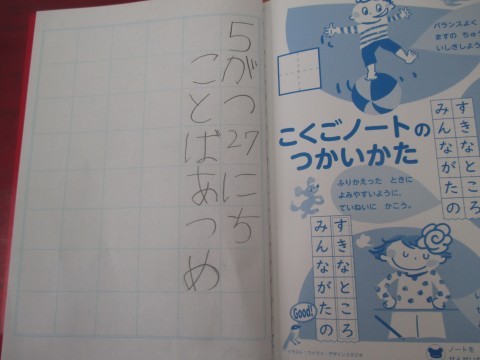 5がつ27にち
ことばあつめ
バランスよく
ますの ちゅう
いしきしよう
こくごノートの
つかいかた
すきなところ
みんながたの
ふりかえった ときに
よみやすいように、
ていねいに かこう。
すきなところ
みんながたの
Good!
ノートを